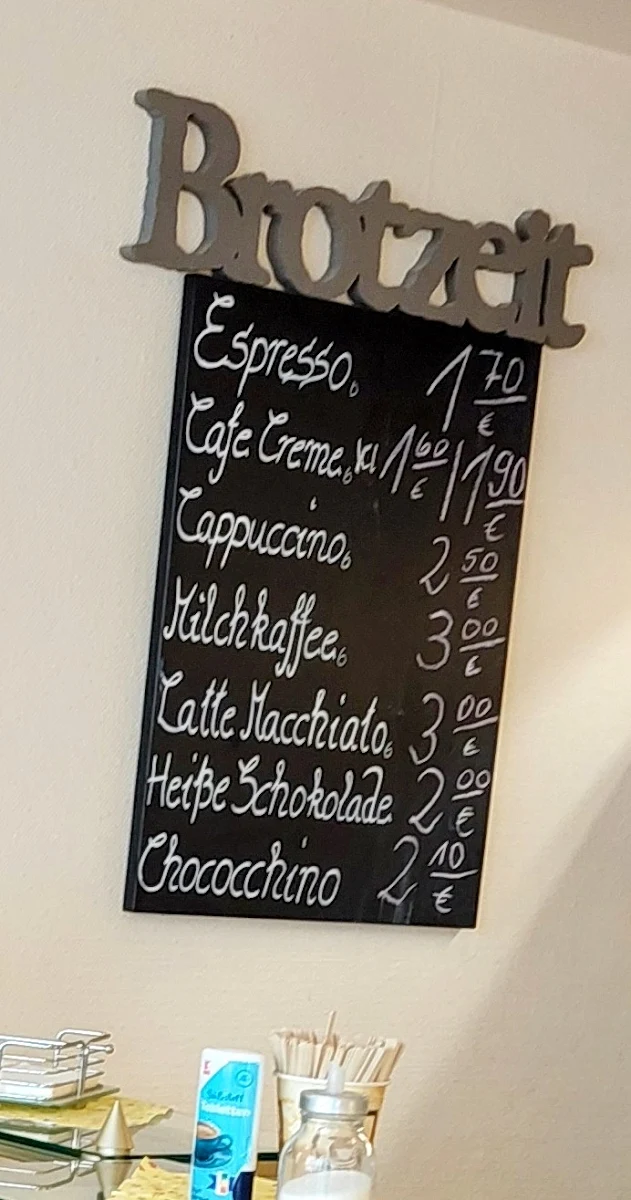 Brotzeit
Espresso₆ 1 70 €
Cafe Creme₆ kl 1 60 € | 1 90 €
Cappuccino₆ 2 50 €
Milchkaffee₆ 3 00 €
Latte Macchiato₆ 3 00 €
Heiße Schokolade 2 00 €
Chococchino 2 10 €
Süßstoff
Tabletten